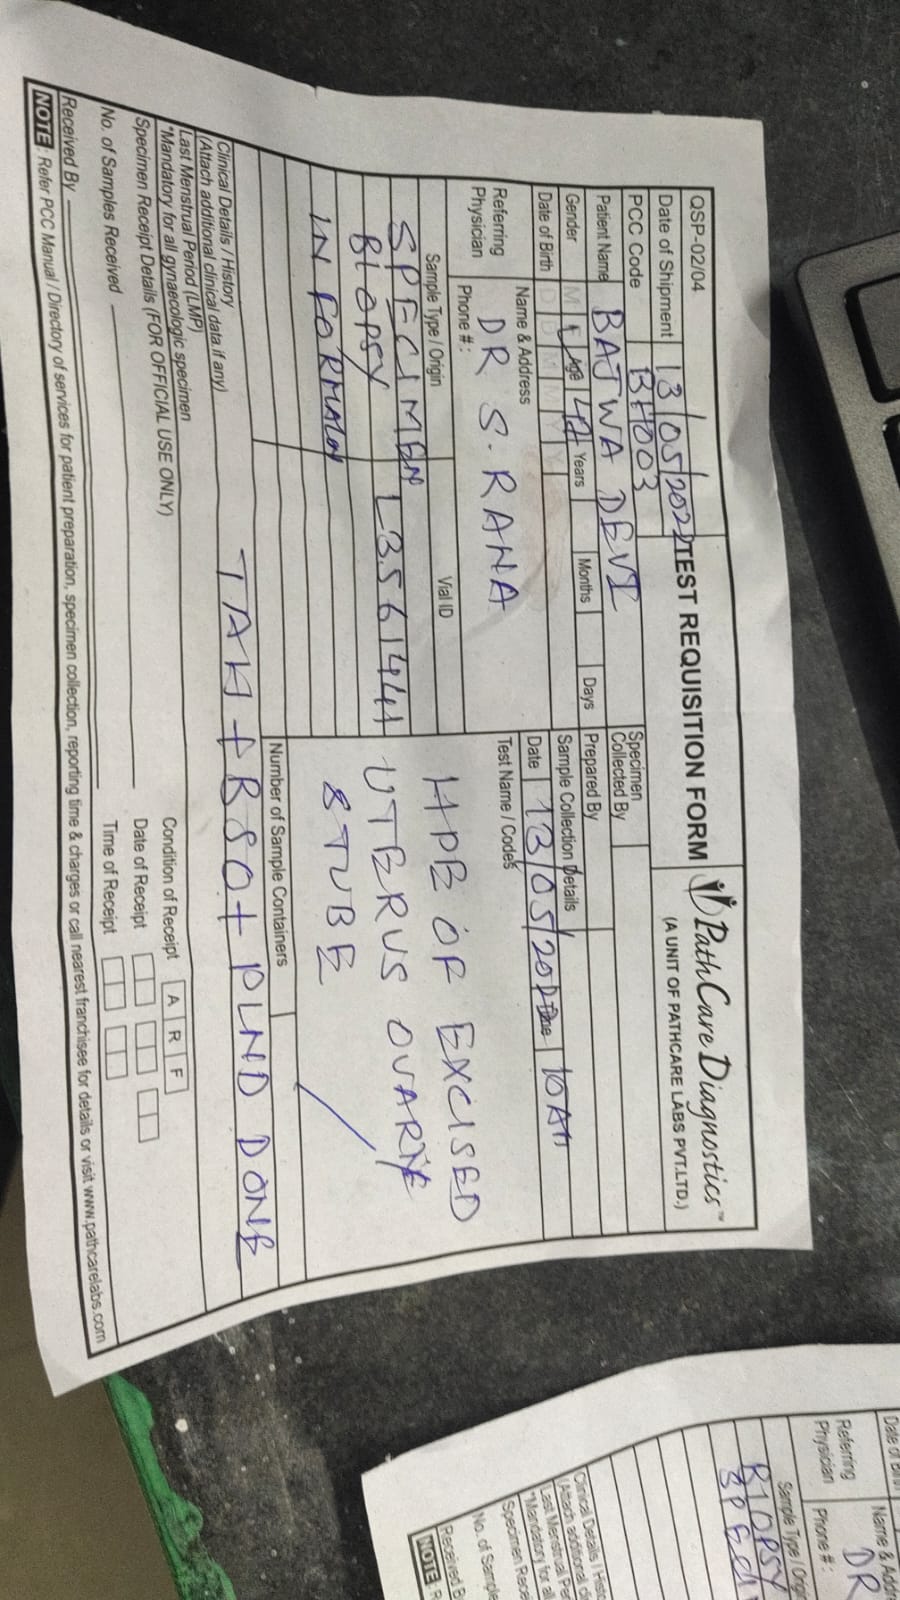 QSP-02/04
TEST REQUISITION FORM
PathCare Diagnostics™
(A UNIT OF PATHCARE LABS PVT.LTD.)
Date of Shipment 13/05/2022
PCC Code BH003
Specimen Collected By
Patient Name BAJWA DEVI
Prepared By
Gender M Age Years Months Days
Sample Collection Details
Date of Birth
Date 13/05/202 Time 10 AM
Referring Physician
Name & Address
DR S. RANA
Phone #:
Test Name / Codes
Sample Type / Origin Vial ID
SPECIMEN L3561441
BIOPSY
IN FORMALN
HPE OF EXCISED
UTERUS OVARY
& TUBE
Number of Sample Containers
Clinical Details / History
(Attach additional clinical data if any)
TAH + BSO + PLND DONE
Last Menstrual Period (LMP)
*Mandatory for all gynaecologic specimen
Specimen Receipt Details (FOR OFFICIAL USE ONLY)
Condition of Receipt A R F
Date of Receipt
No. of Samples Received
Time of Receipt
Received By
NOTE: Refer PCC Manual / Directory of services for patient preparation, specimen collection, reporting time & charges or call nearest franchisee for details or visit www.pathcarelabs.com
Date of
Referring Physician
Name &
DR
Phone #:
Sample Type /
BIOPSY
Clinical Details /
(Attach additional
Last Menstrual
*Mandatory for all
Specimen
No. of
Received
NOTE